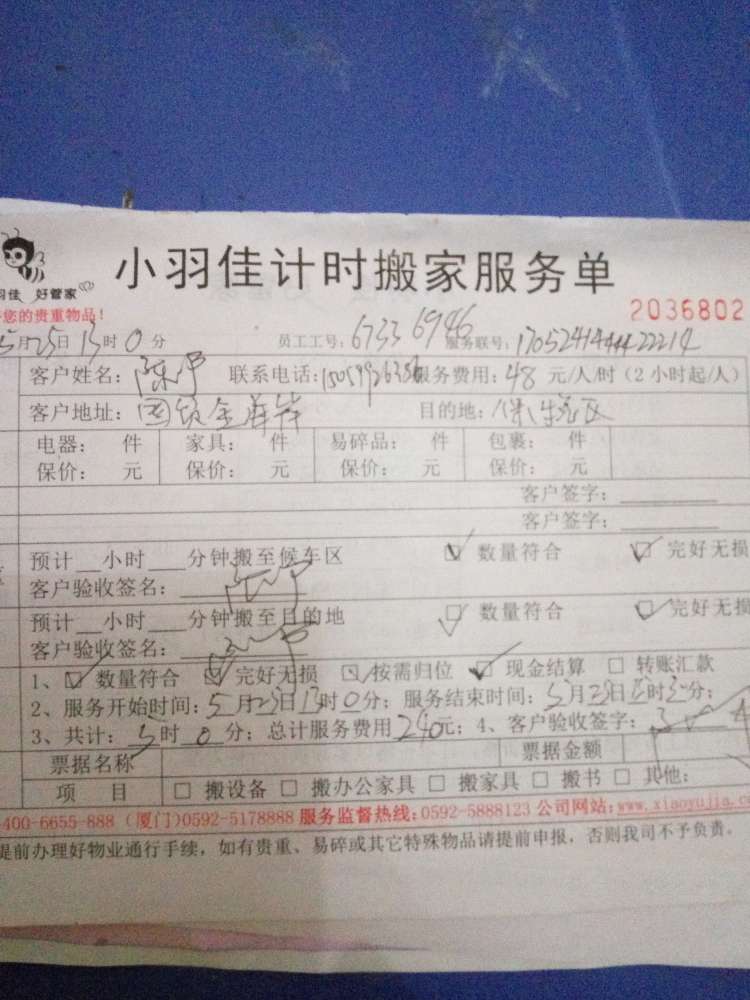 小羽佳计时搬家服务单
羽佳 好管家
您的贵重物品！
2036802
5月25日13时0分 员工工号：6733 6946 服务联号：
客户姓名： 联系电话： 服务费用：48元/人/时（2小时起/人）
客户地址：国贸金海岸 目的地：
电器： 件 家具： 件 易碎品： 件 包裹： 件
保价： 元 保价： 元 保价： 元 保价： 元
客户签字：
客户签字：
预计__小时___分钟搬至候车区 ☑ 数量符合 ☑ 完好无损
客户验收签名：
预计__小时___分钟搬至目的地 ☑ 数量符合 ☑ 完好无损
客户验收签名：
1、☑ 数量符合 ☑ 完好无损 ☑ 按需归位 ☑ 现金结算 □ 转账汇款
2、服务开始时间：5月25日13时0分；服务结束时间：5月 日 时 分；
3、共计：5时0分；总计服务费用240元；4、客户验收签字：
票据名称 票据金额
项 目 □ 搬设备 □ 搬办公家具 □ 搬家具 □ 搬书 □ 其他：
400-6655-888（厦门）0592-5178888 服务监督热线：0592-5888123 公司网站：www.xiaoyujia.c
提前办理好物业通行手续，如有贵重、易碎或其它特殊物品请提前申报，否则我司不予负责。